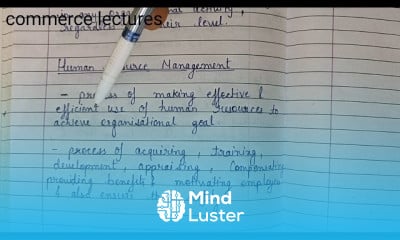 commerce lectures
regardless of their level.
Human Resource Management
- process of making effective &
efficient use of human resources to
achieve organisational goal.
- process of acquiring, training,
development, appraising, compensating
providing benefits & motivating employees
& also ensure
Mind
Luster